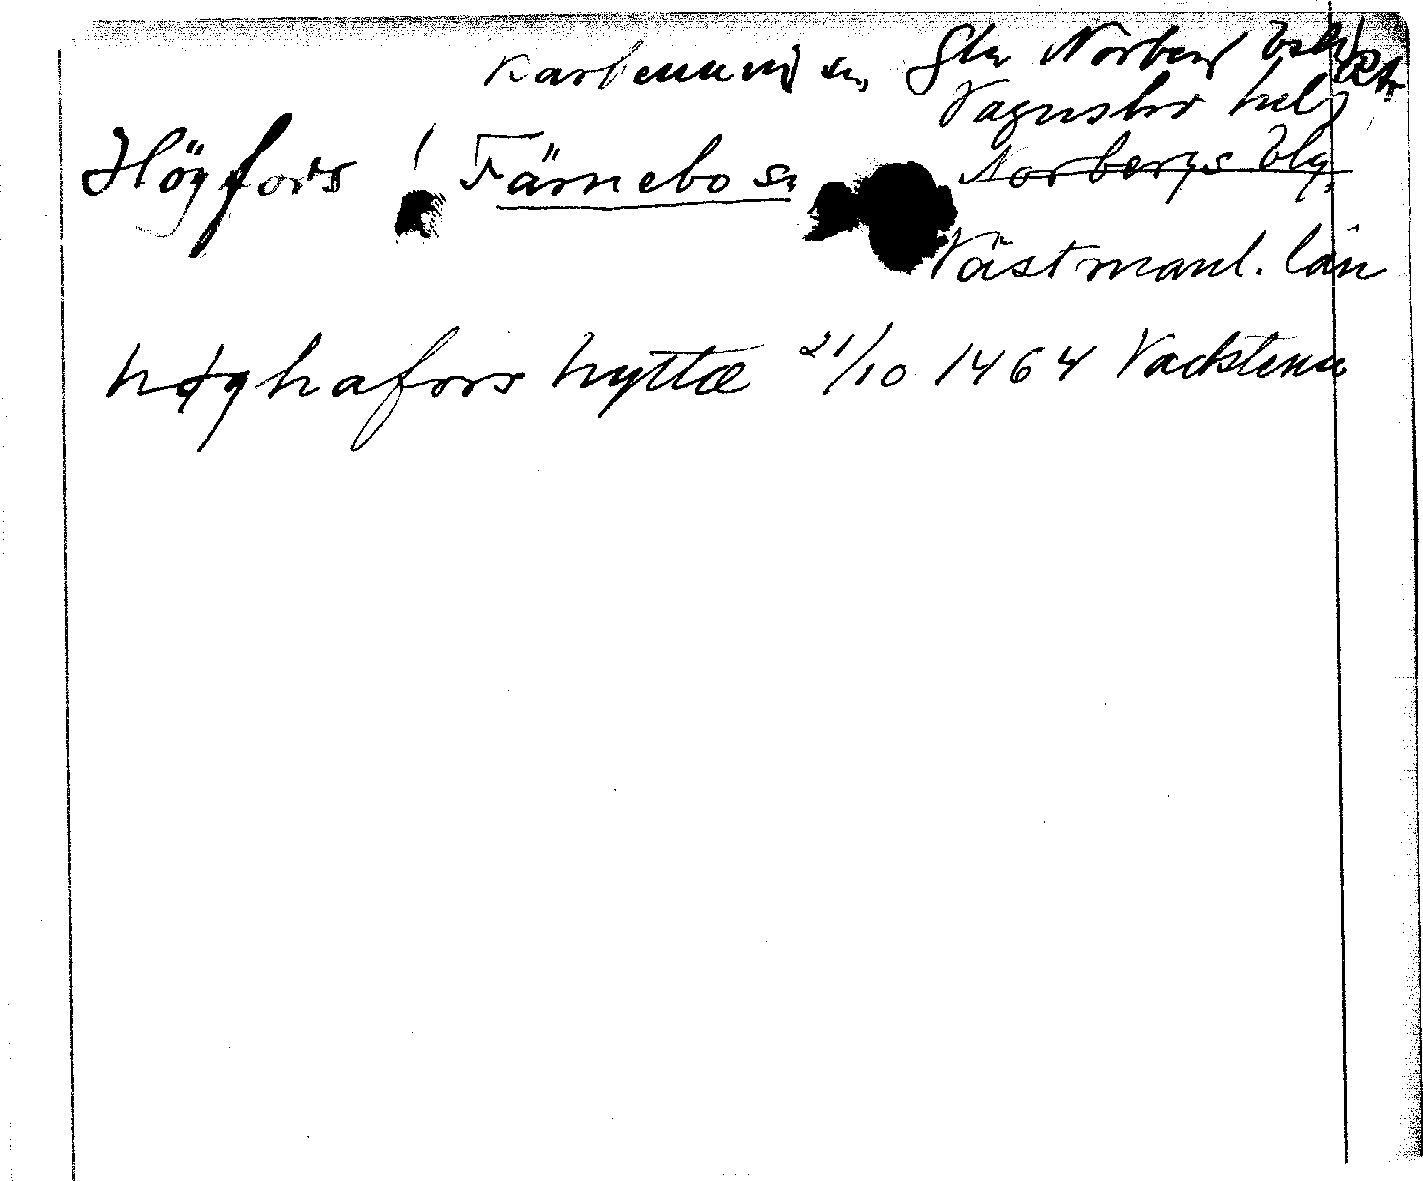 Karbenning sn, Gla Norberg
Vagnsbro hd
Högfors Färnebo sn Norbergs blg.
Västmanl. län
høghafors hyttæ 21/10 1464 Vadstena